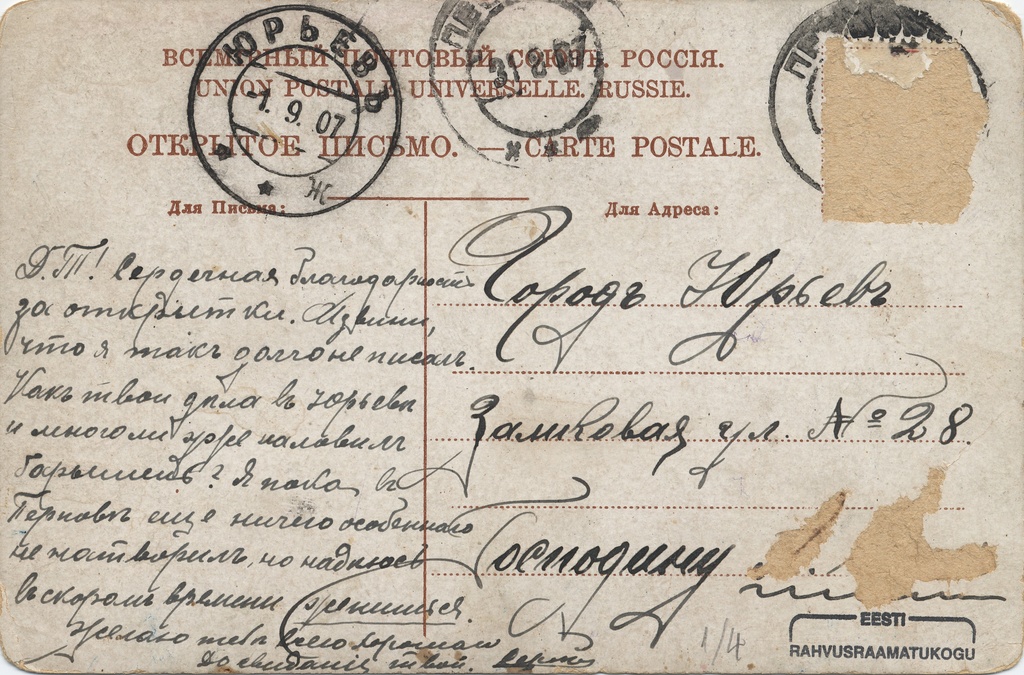 ВСЕМІРНЫЙ ПОЧТОВЫЙ СОЮЗЪ. РОССІЯ.
UNION POSTALE UNIVERSELLE. RUSSIE.
ОТКРЫТОЕ ПИСЬМО. — CARTE POSTALE.
ЮРЬЕВЪ
1. 9. 07
Ж
31 8 07
Для Письма:
Для Адреса:
Д. Т! Сердечная благодарность
за открытки. Извини,
что я такъ долго не писалъ.
Какъ твои дѣла въ Юрьевѣ
и много ли уже наловилъ
барышень? Я пока въ
Перновѣ еще ничего особеннаго
не натворилъ, но надѣюсь
въ скоромъ времени жениться.
Желаю тебѣ всего хорошаго
До свиданія твой
Городъ Юрьевъ
Замковая ул. № 28.
Господину
1/4
EESTI
RAHVUSRAAMATUKOGU